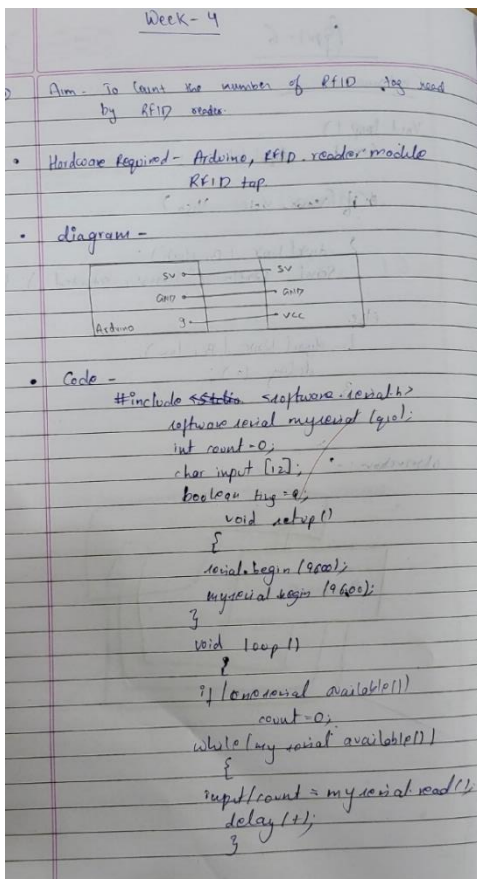 Week - 4
Aim - To Count the number of RFID tag read
by RFID reader.
Hardware Required - Arduino, RFID reader module
RFID tap.
diagram -
5V 5V
GND GND
Arduino 9 VCC
Code -
#include <software.serial.h>
software serial myserial (9,10);
int count = 0;
char input [12];
boolean flag = 0;
void setup()
{
serial.begin (9600);
myserial.begin (9600);
}
void loop ()
{
if ( available())
count = 0;
while (my serial available())
{
input/count = myserial.read();
delay (1);
}